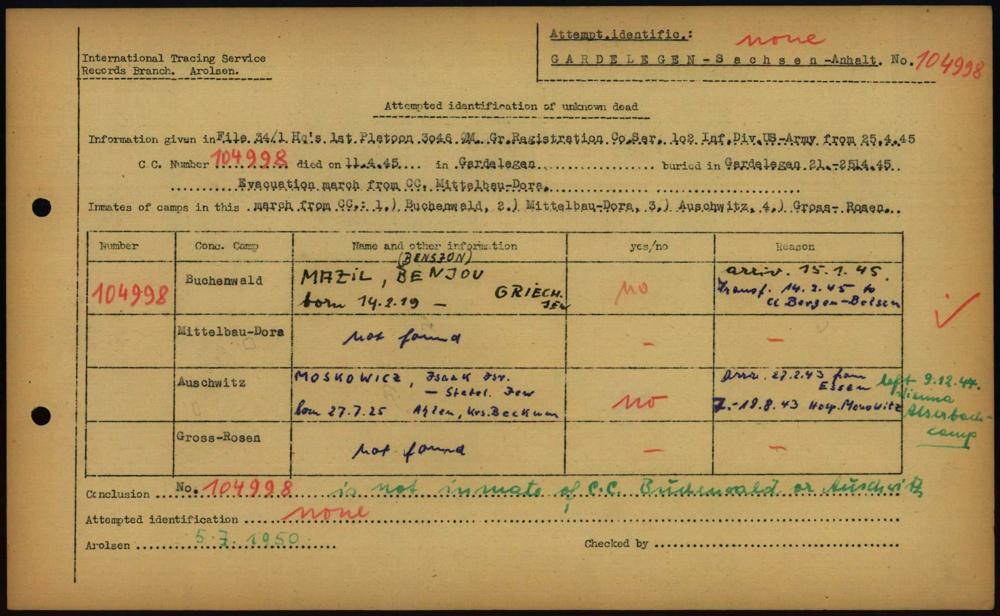 Attempt.identific.: none
International Tracing Service
Records Branch. Arolsen.
GARDELEGEN-Sachsen-Anhalt. No. 104998
Attempted identification of unknown dead
Information given in File 34/1 Hq's 1st Pletoon 3046 QM. Gr.Registration Co.Ser. 102 Inf.Div.US-Army from 25.4.45
C C. Number 104998 died on 11.4.45 in Gardelegen buried in Gardelegen 21.-2514.45
Evacuation march from CC. Mittelbau-Dora.
Inmates of camps in this march from CC.: 1.) Buchenwald, 2.) Mittelbau-Dora, 3.) Auschwitz, 4.) Gross-Rosen.
Number Conc. Camp Name and other information yes/no Reason
(BENSZON)
104998 Buchenwald MAZIL, BENJOU no arriv. 15.1.45.
born 14.2.19 — GRIECH. JEW transf. 14.2.45 to
CC Bergen-Belsen
Mittelbau-Dora not found - -
Auschwitz MOSKOWICZ, Isaak Isr. no Arr. 27.2.43 from
— Statel. Jew Essen
born 27.7.25 Ahlen, Krs. Beckum 7.-18.8.43 Hosp. Monowitz
left 9.12.44.
Vienna
camp
Gross-Rosen not found - -
Conclusion No. 104998 is not inmate of C.C. Buchenwald or Auschwitz
Attempted identification none
Arolsen 5.7.1950 Checked by